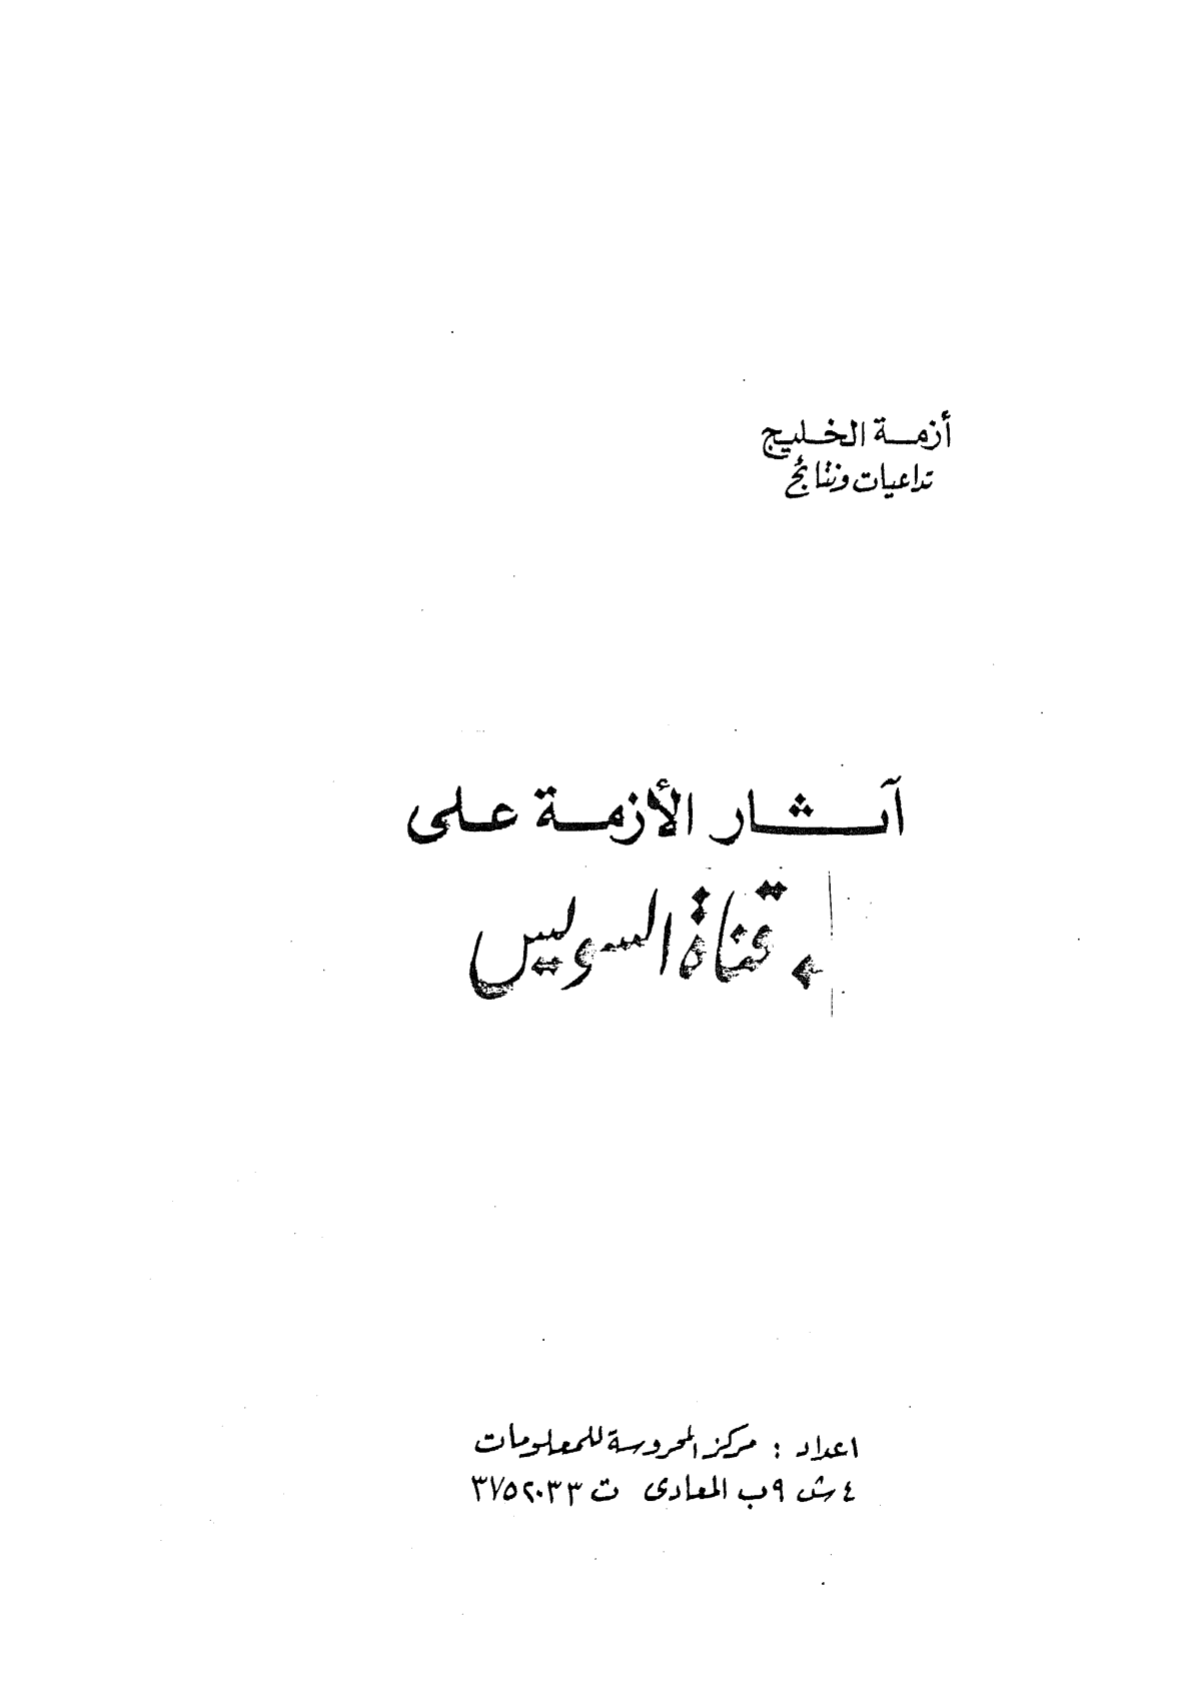 أزمة الخليج
تداعيات ونتائج
آثار الأزمة على
قناة السويس
اعداد : مركز المحروسة للمعلومات
٤ ش ٩ب المعادى ت ٣٧٥٢٠٣٣